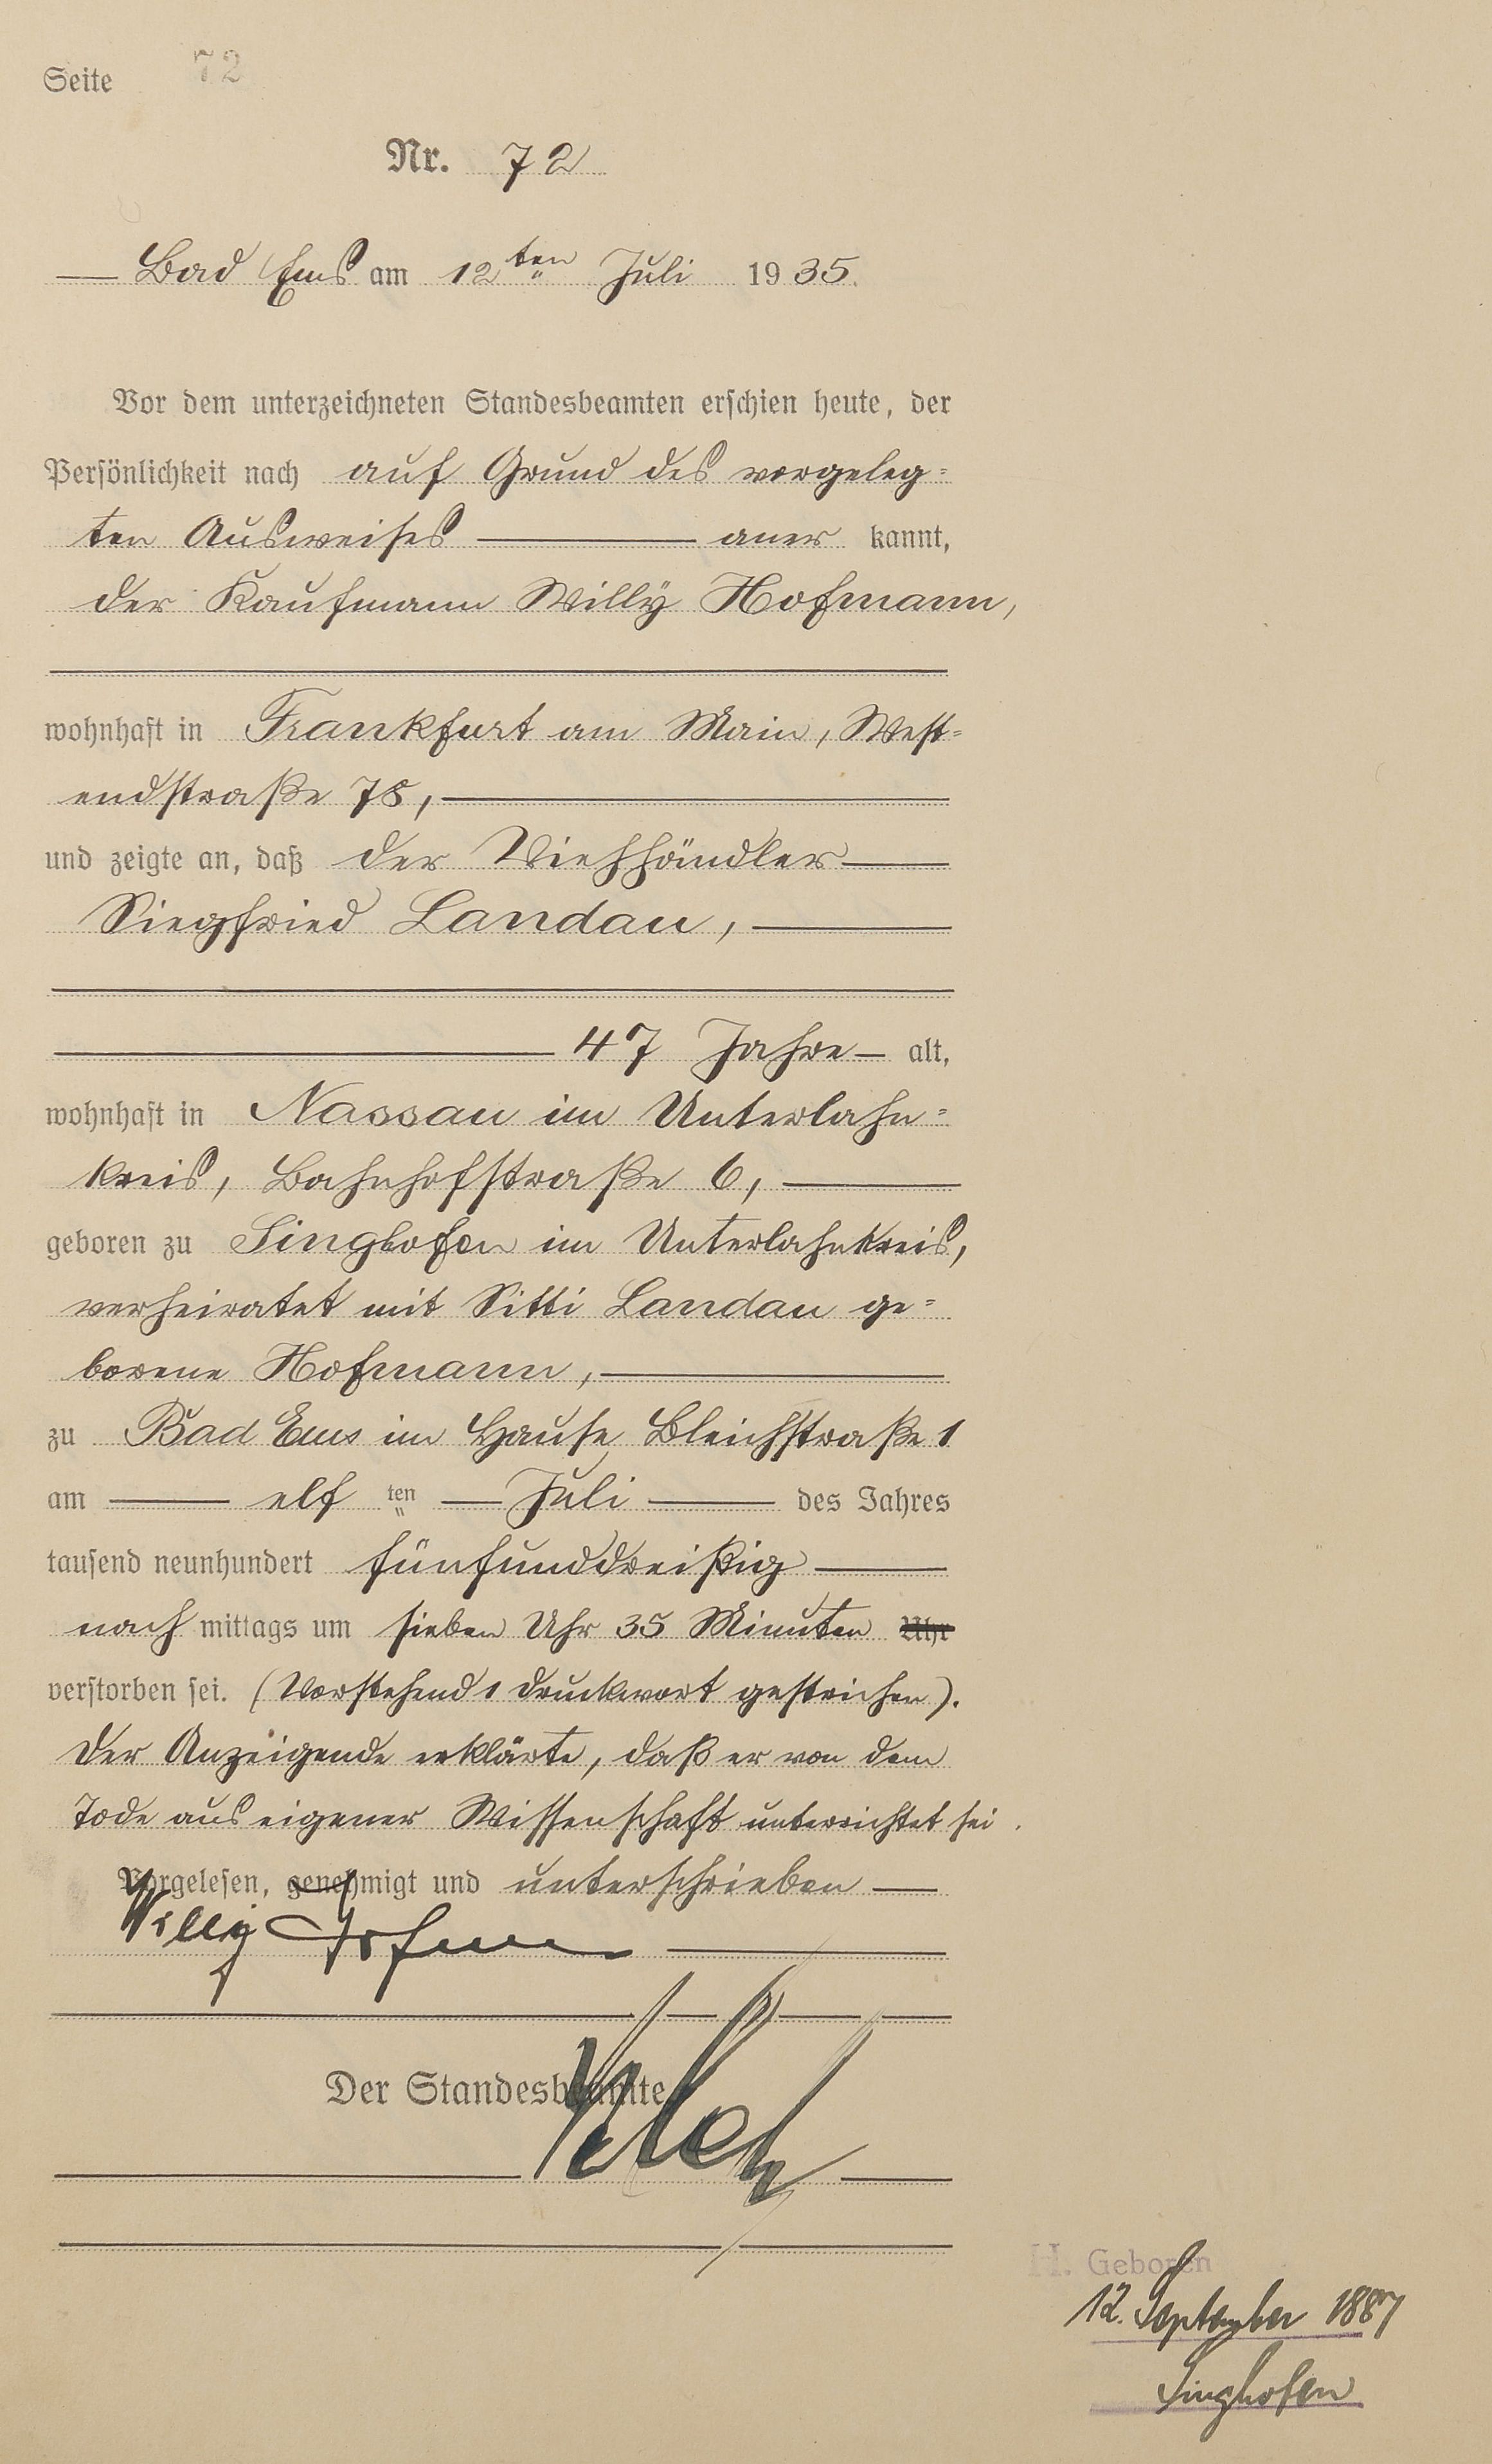 Seite 72
Nr. 72
Bad Ems am 12ten Juli 1935.
Vor dem unterzeichneten Standesbeamten erschien heute, der
Persönlichkeit nach auf Grund des vorgeleg=
ten Ausweises aner kannt,
der Kaufmann Willy Hofmann,
wohnhaft in Frankfurt am Main, West=
endstraße 78,
und zeigte an, daß der Viehhändler
Siegfried Landau,
47 Jahre alt,
wohnhaft in Nassau im Unterlahn=
kreis, Bahnhofstraße 6,
geboren zu Singhofen im Unterlahnkreis,
verheiratet mit Sitti Landau ge=
borene Hofmann,
zu Bad Ems im Hause Bleichstraße 1
am elf ten Juli des Jahres
tausend neunhundert fünfunddreißig
nach mittags um sieben Uhr 35 Minuten Uhr
verstorben sei. (Vorstehend 1 Druckwort gestrichen).
Der Anzeigende erklärte, daß er von dem
Tode aus eigener Wissenschaft unterrichtet sei.
Vorgelesen, genehmigt und unterschrieben
Willy Hofmann
Der Standesbeamte
H. Geboren
12. September 1887
Singhofen